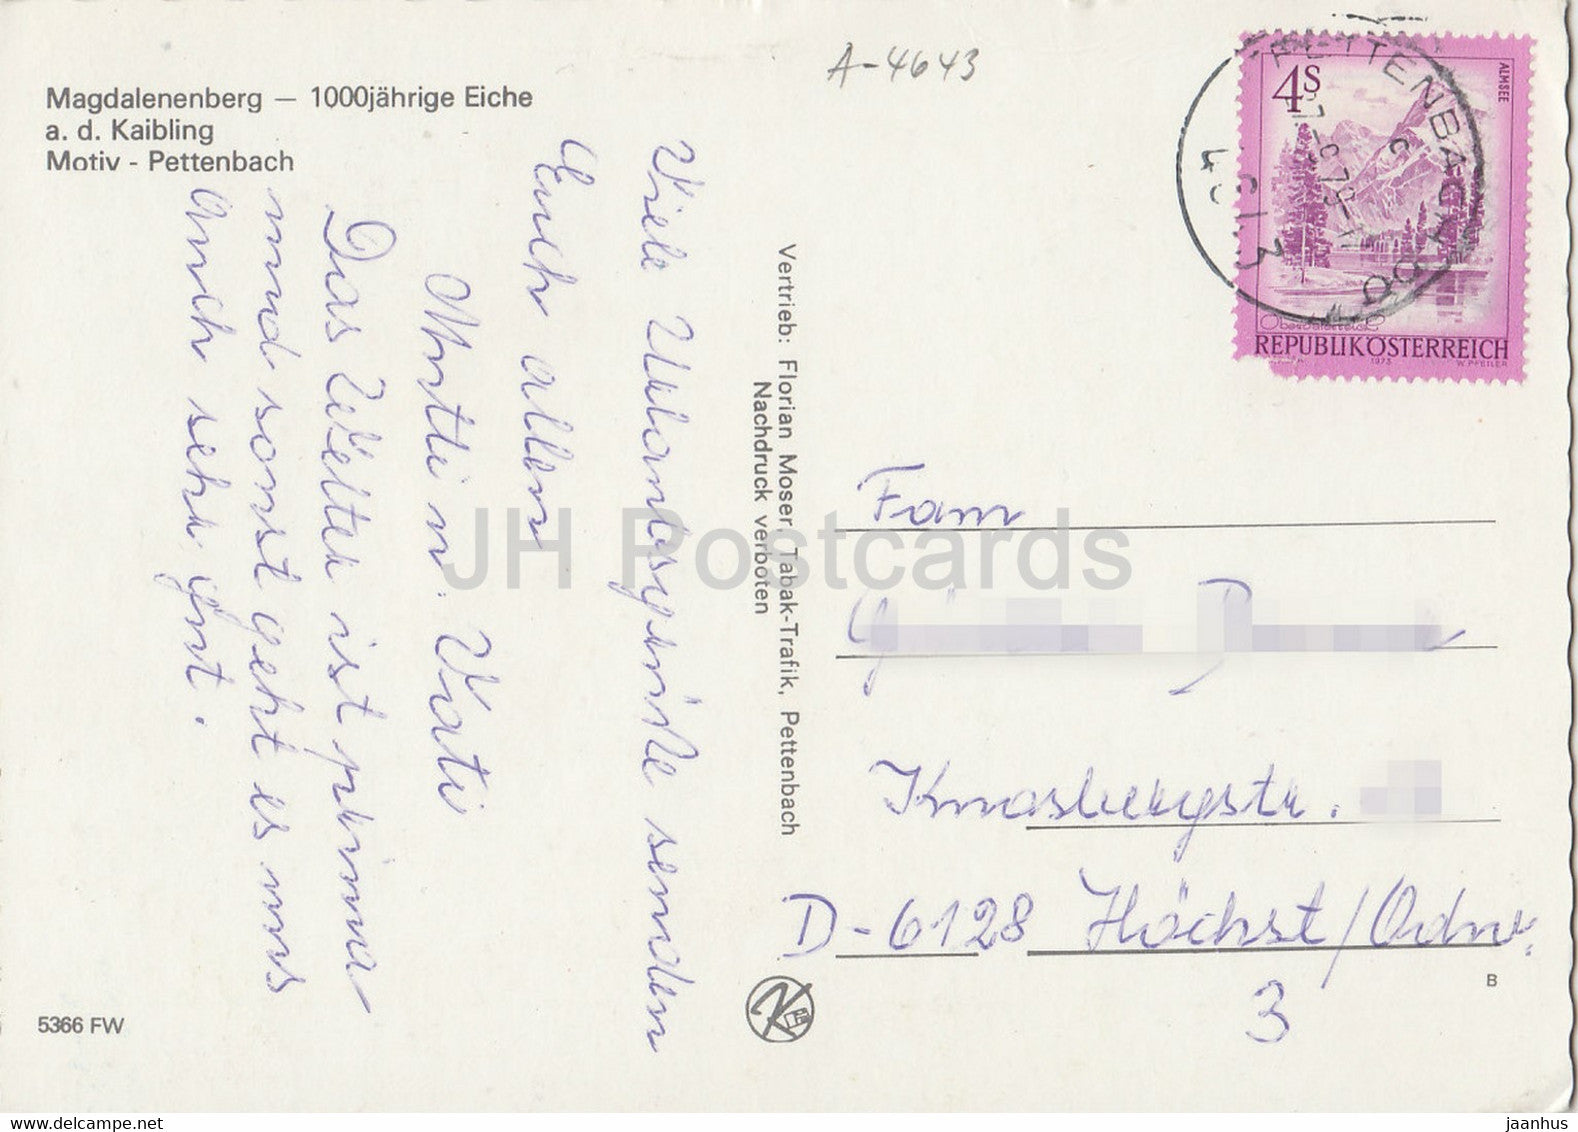 Magdalenenberg — 1000jährige Eiche
a. d. Kaibling
Motiv - Pettenbach
A-4643
Viele Urlaubsgrüße senden
Euch allen
Mutti u. Vati
Das Wetter ist prima
und sonst geht es uns
auch sehr gut.
Vertrieb: Florian Moser, Tabak-Trafik, Pettenbach
Nachdruck verboten
4S
ALMSEE
Oberösterreich
REPUBLIK ÖSTERREICH
1973
W. PFEILER
PETTENBACH OÖ
4643
Fam
Kmosbergstr.
D-6128 Höchst/Odw.
3
B
5366 FW
JH Postcards
delcampe.net
jaanhus